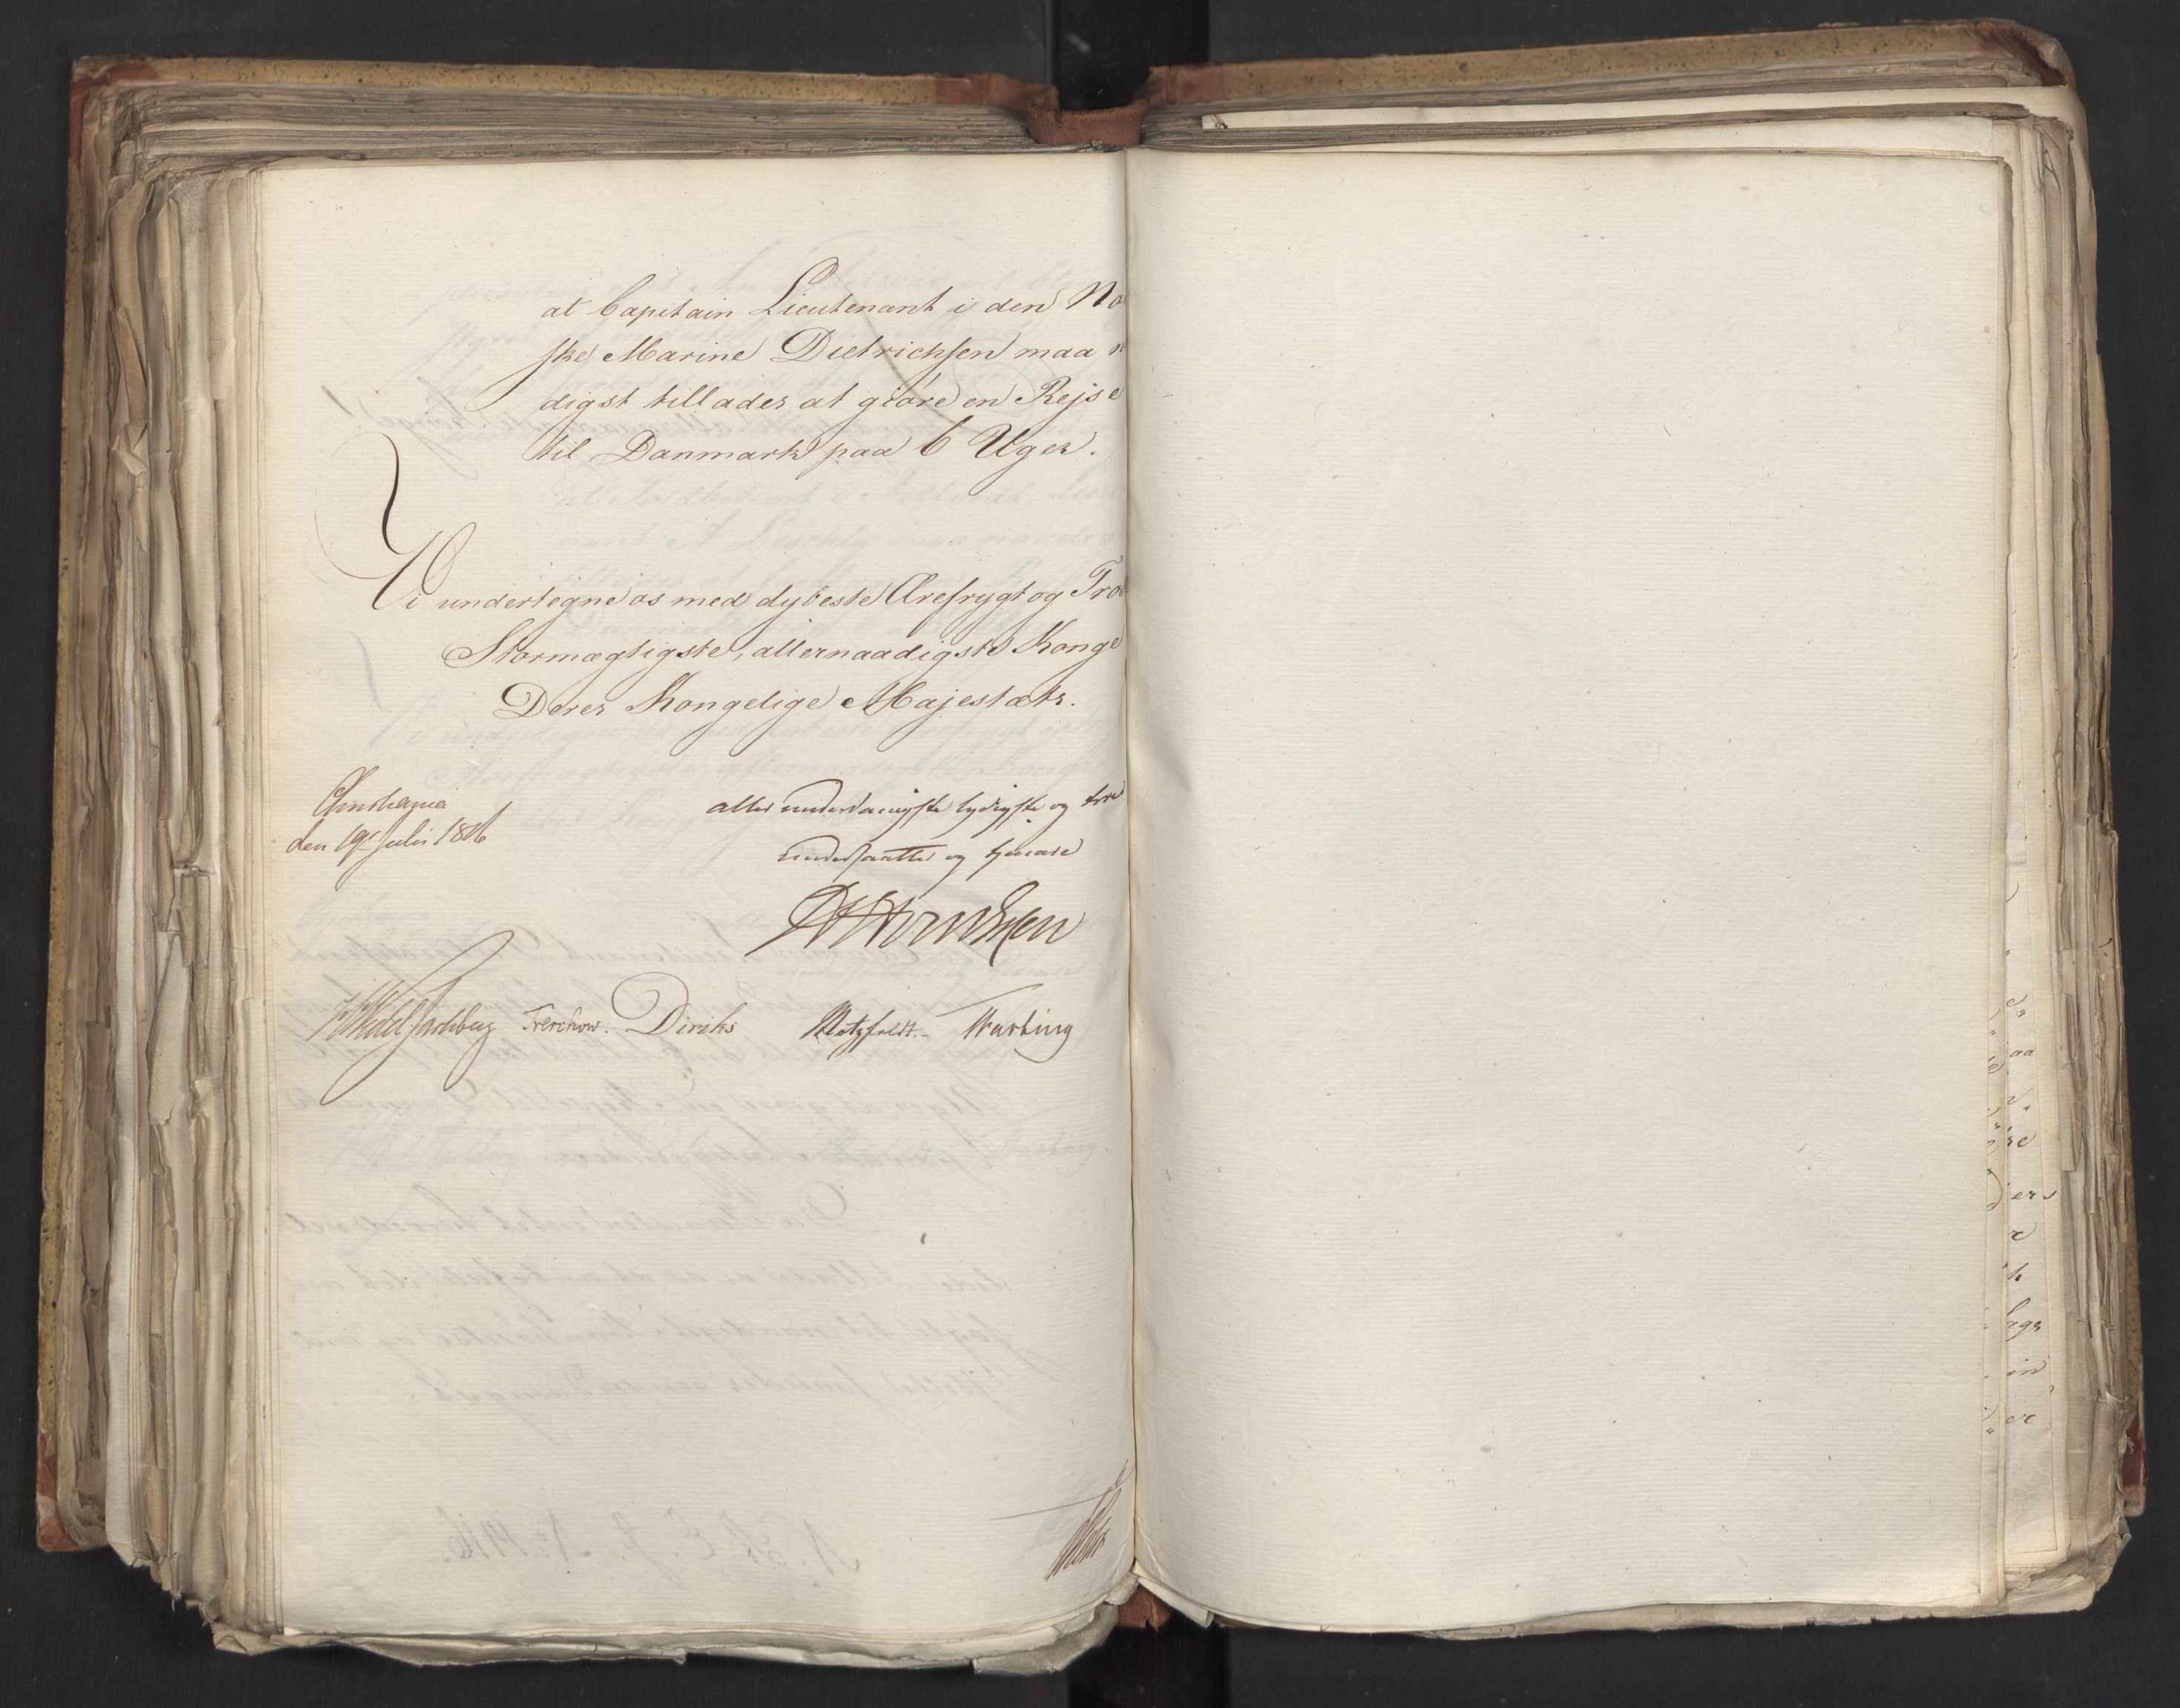 at Capitain Lieutenant i den No
ske Marine Dietrichsen maa n
digst tillades at giöre en Rejse
til Danmark paa 6 Uger.
Vi undertegne os med dybeste Ærefrygt og Tro
Stormægtigste, allernaadigste Konge
Deres Kongelige Majestæts.
Christiania
den 19de Julii 1816
allerunderdanigste lydigste og troe
undersaatter og tjenere
Wedel Jarlsberg Treschow. Diriks Motzfeldt. Krebting